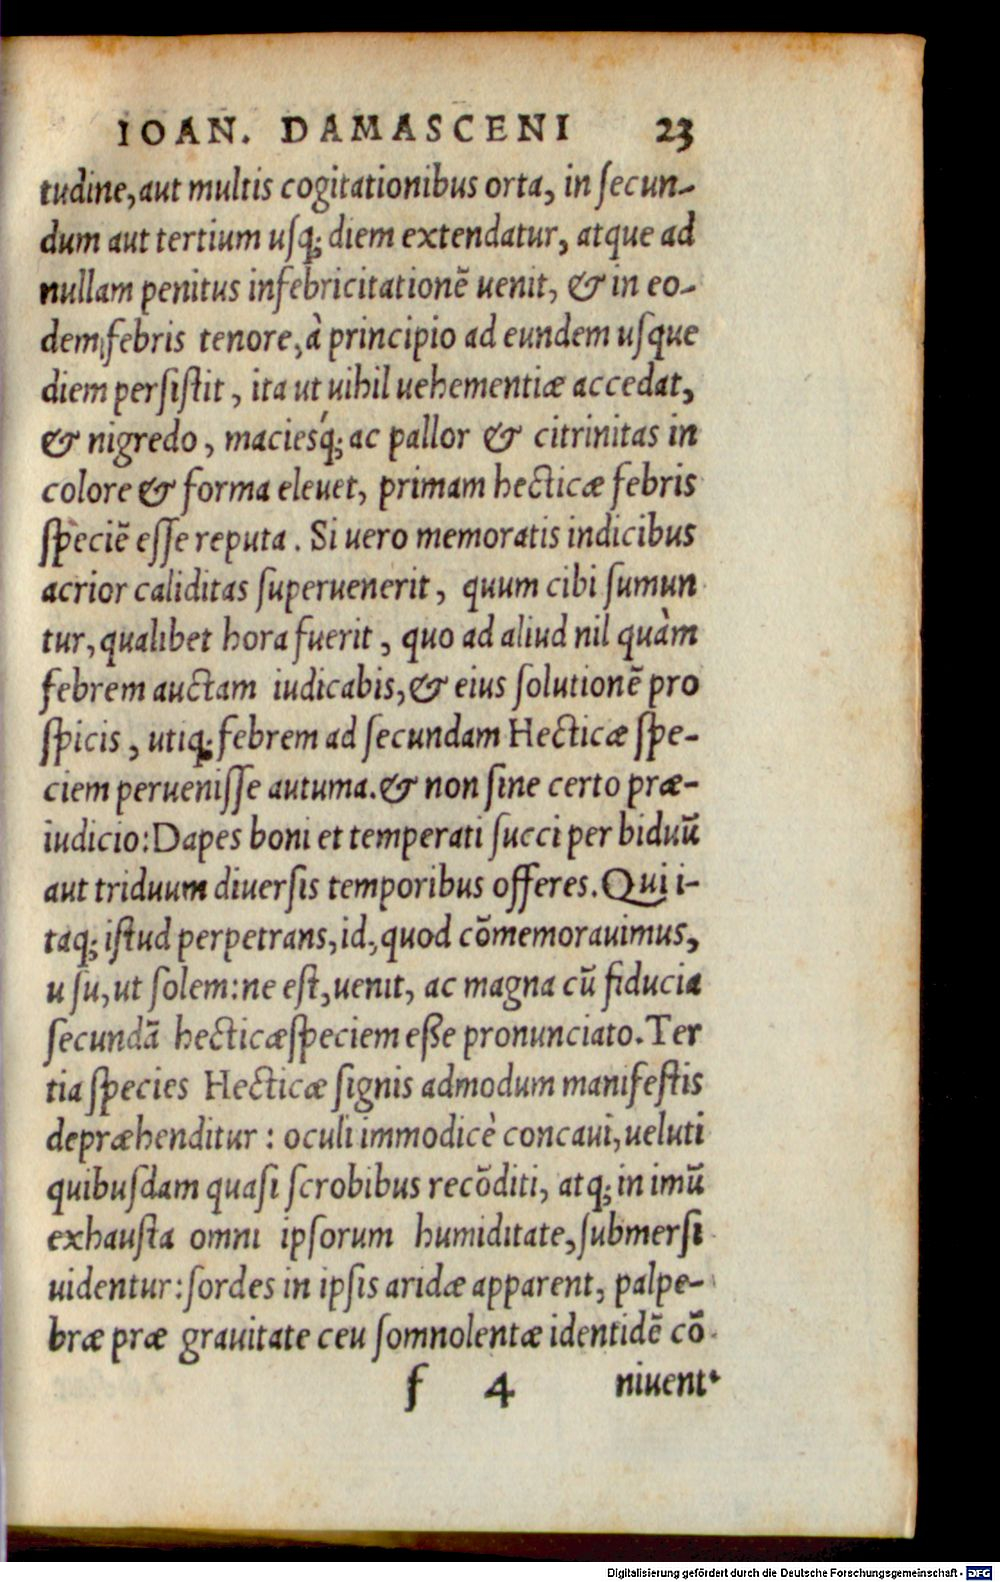 IOAN. DAMASCENI 23
tudine, aut multis cogitationibus orta, in ſecun-
dum aut tertium uſq; diem extendatur, atque ad
nullam penitus infebricitationẽ uenit, & in eo-
dem febris tenore, à principio ad eundem uſque
diem perſiſtit, ita ut uihil uehementiæ accedat,
& nigredo, macieśq; ac pallor & citrinitas in
colore & forma eleuet, primam hecticæ febris
ſpeciẽ eſſe reputa. Si uero memoratis indicibus
acrior caliditas ſuperuenerit, quum cibi ſumun
tur, qualibet hora fuerit, quo ad aliud nil quàm
febrem auctam iudicabis, & eius ſolutionẽ pro
ſpicis, utiq; febrem ad ſecundam Hecticæ ſpe-
ciem perueniſſe autuma. & non ſine certo præ-
iudicio: Dapes boni et temperati ſucci per biduũ
aut triduum diuerſis temporibus offeres. Qui i-
taq; iſtud perpetrans, id, quod cõmemorauimus,
u ſu, ut ſolem: ne eſt, uenit, ac magna cũ fiducia
ſecundã hecticæ ſpeciem eße pronunciato. Ter
tia ſpecies Hecticæ ſignis admodum manifeſtis
depræhenditur: oculi immodicè concaui, ueluti
quibuſdam quaſi ſcrobibus recõditi, atq; in imũ
exhauſta omni ipſorum humiditate, ſubmerſi
uidentur: ſordes in ipſis aridæ apparent, palpe-
bræ præ grauitate ceu ſomnolentæ identidẽ cõ
f 4 niuent
Digitalisierung gefördert durch die Deutsche Forschungsgemeinschaft - DFG